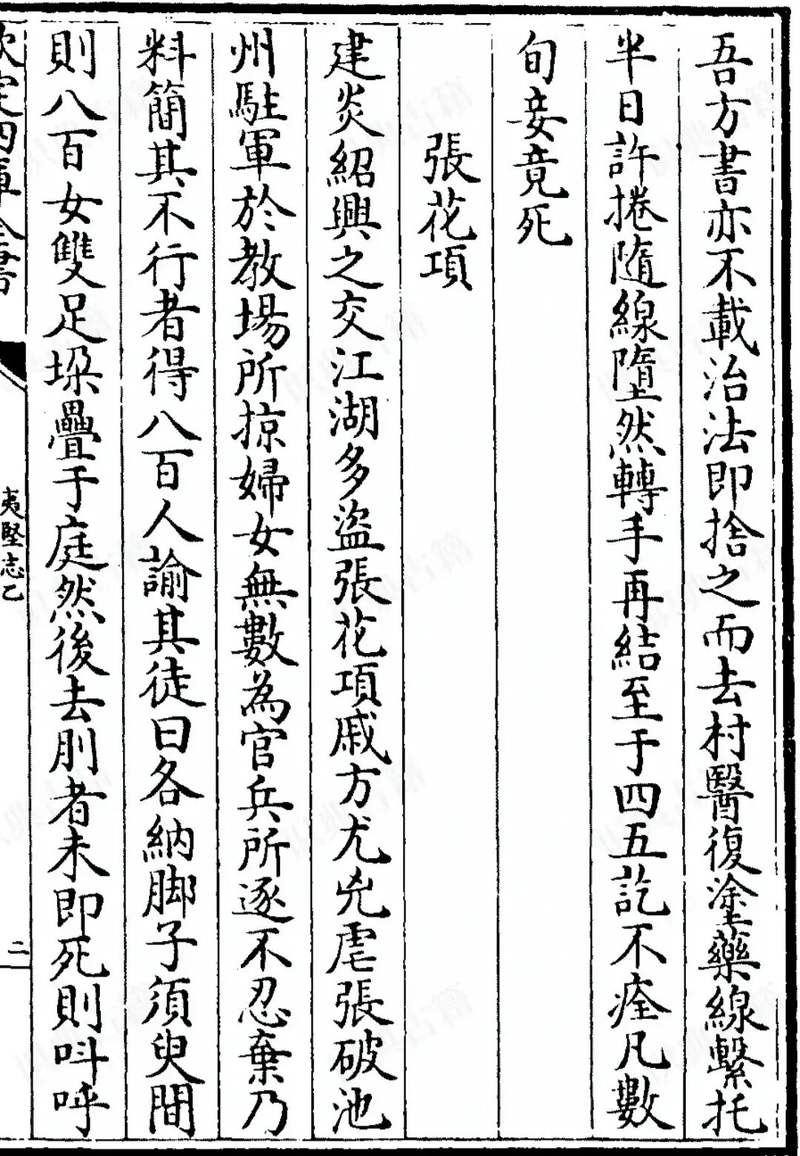 吾方書亦不載治法即捨之而去村醫復塗藥線繫托
半日許捲隨線墮然轉手再結至于四五訖不痊凡數
旬妾竟死
張花項
建炎紹興之交江湖多盜張花項戚方尤兇虐張破池
州駐軍於教場所掠婦女無數為官兵所逐不忍棄乃
料簡其不行者得八百人諭其徒曰各納脚子須臾間
則八百女雙足垛疊于庭然後去刖者未即死則呌呼
欽定四庫全書
夷堅志乙
二